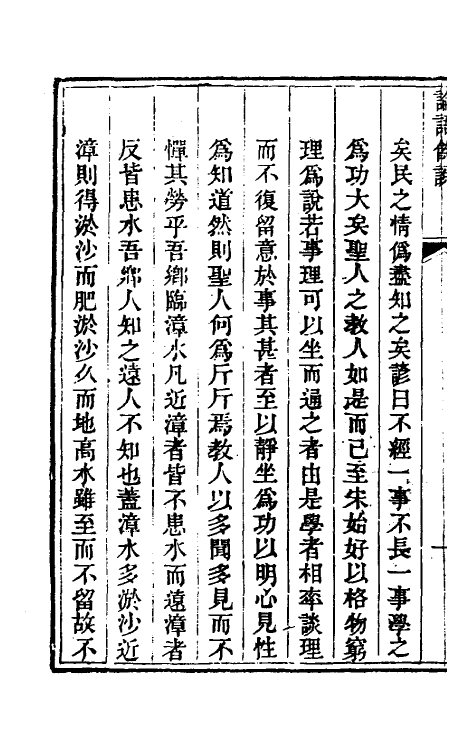 論語餘説
矣民之情僞盡知之矣諺曰不經一事不長一事學之
爲功大矣聖人之教人如是而已至宋始好以格物窮
理爲說若事理可以坐而通之者由是學者相率談理
而不復留意於事其甚者至以靜坐爲功以明心見性
爲知道然則聖人何爲斤斤焉教人以多聞多見而不
憚其勞乎吾鄕臨漳水凡近漳者皆不患水而遠漳者
反皆患水吾鄕人知之遠人不知也蓋漳水多淤沙近
漳則得淤沙而肥淤沙久而地高水雖至而不留故不